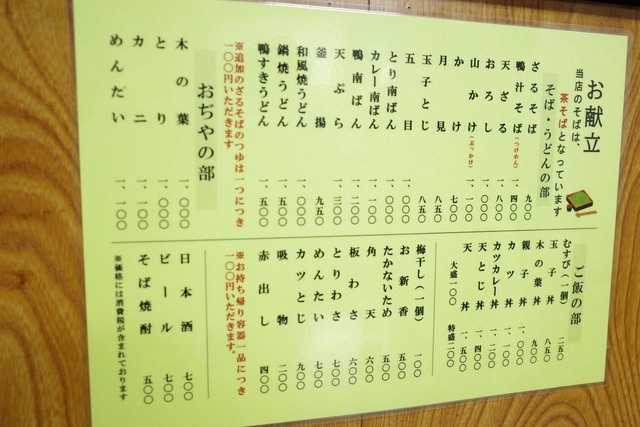 お献立
当店のそばは、
茶そばとなっています
そば・うどんの部
ざるそば 九〇〇
鴨汁そば（つけめん） 一、四〇〇
天ざる 一、八〇〇
おろし 一、〇〇〇
山かけ（ぶっかけ） 一、一〇〇
かけ 七〇〇
月見 八五〇
玉子とじ 八五〇
五目 一、〇〇〇
とり南ばん 一、〇〇〇
カレー南ばん 一、一〇〇
鴨南ばん 一、二〇〇
天ぷら 一、三〇〇
釜揚 九五〇
和風焼うどん 一、〇〇〇
鍋焼うどん 一、五〇〇
鴨すきうどん 一、五〇〇
※追加のざるそばのつゆは一つにつき
一〇〇円いただきます
おぢやの部
木の葉 一、〇〇〇
とり 一、〇〇〇
カニ 一、一〇〇
めんたい 一、一〇〇
ご飯の部
むすび（一個） 二五〇
玉子丼 八五〇
木の葉丼 九五〇
親子丼 一、〇〇〇
カツ丼 一、一〇〇
カツカレー丼 一、二〇〇
天とじ丼 一、四〇〇
天丼 一、五〇〇
大盛一〇〇 特盛二〇〇
梅干し（一個） 一〇〇
お新香 五〇〇
たかないため 五〇〇
角天 六〇〇
板わさ 六〇〇
とりわさ 七〇〇
めんたい 七〇〇
カツとじ 九〇〇
吸物 二〇〇
赤出し 四〇〇
※お持ち帰り容器一品につき
一〇〇円いただきます。
日本酒 七〇〇
ビール 七〇〇
そば焼酎 五〇〇
※価格には消費税が含まれております